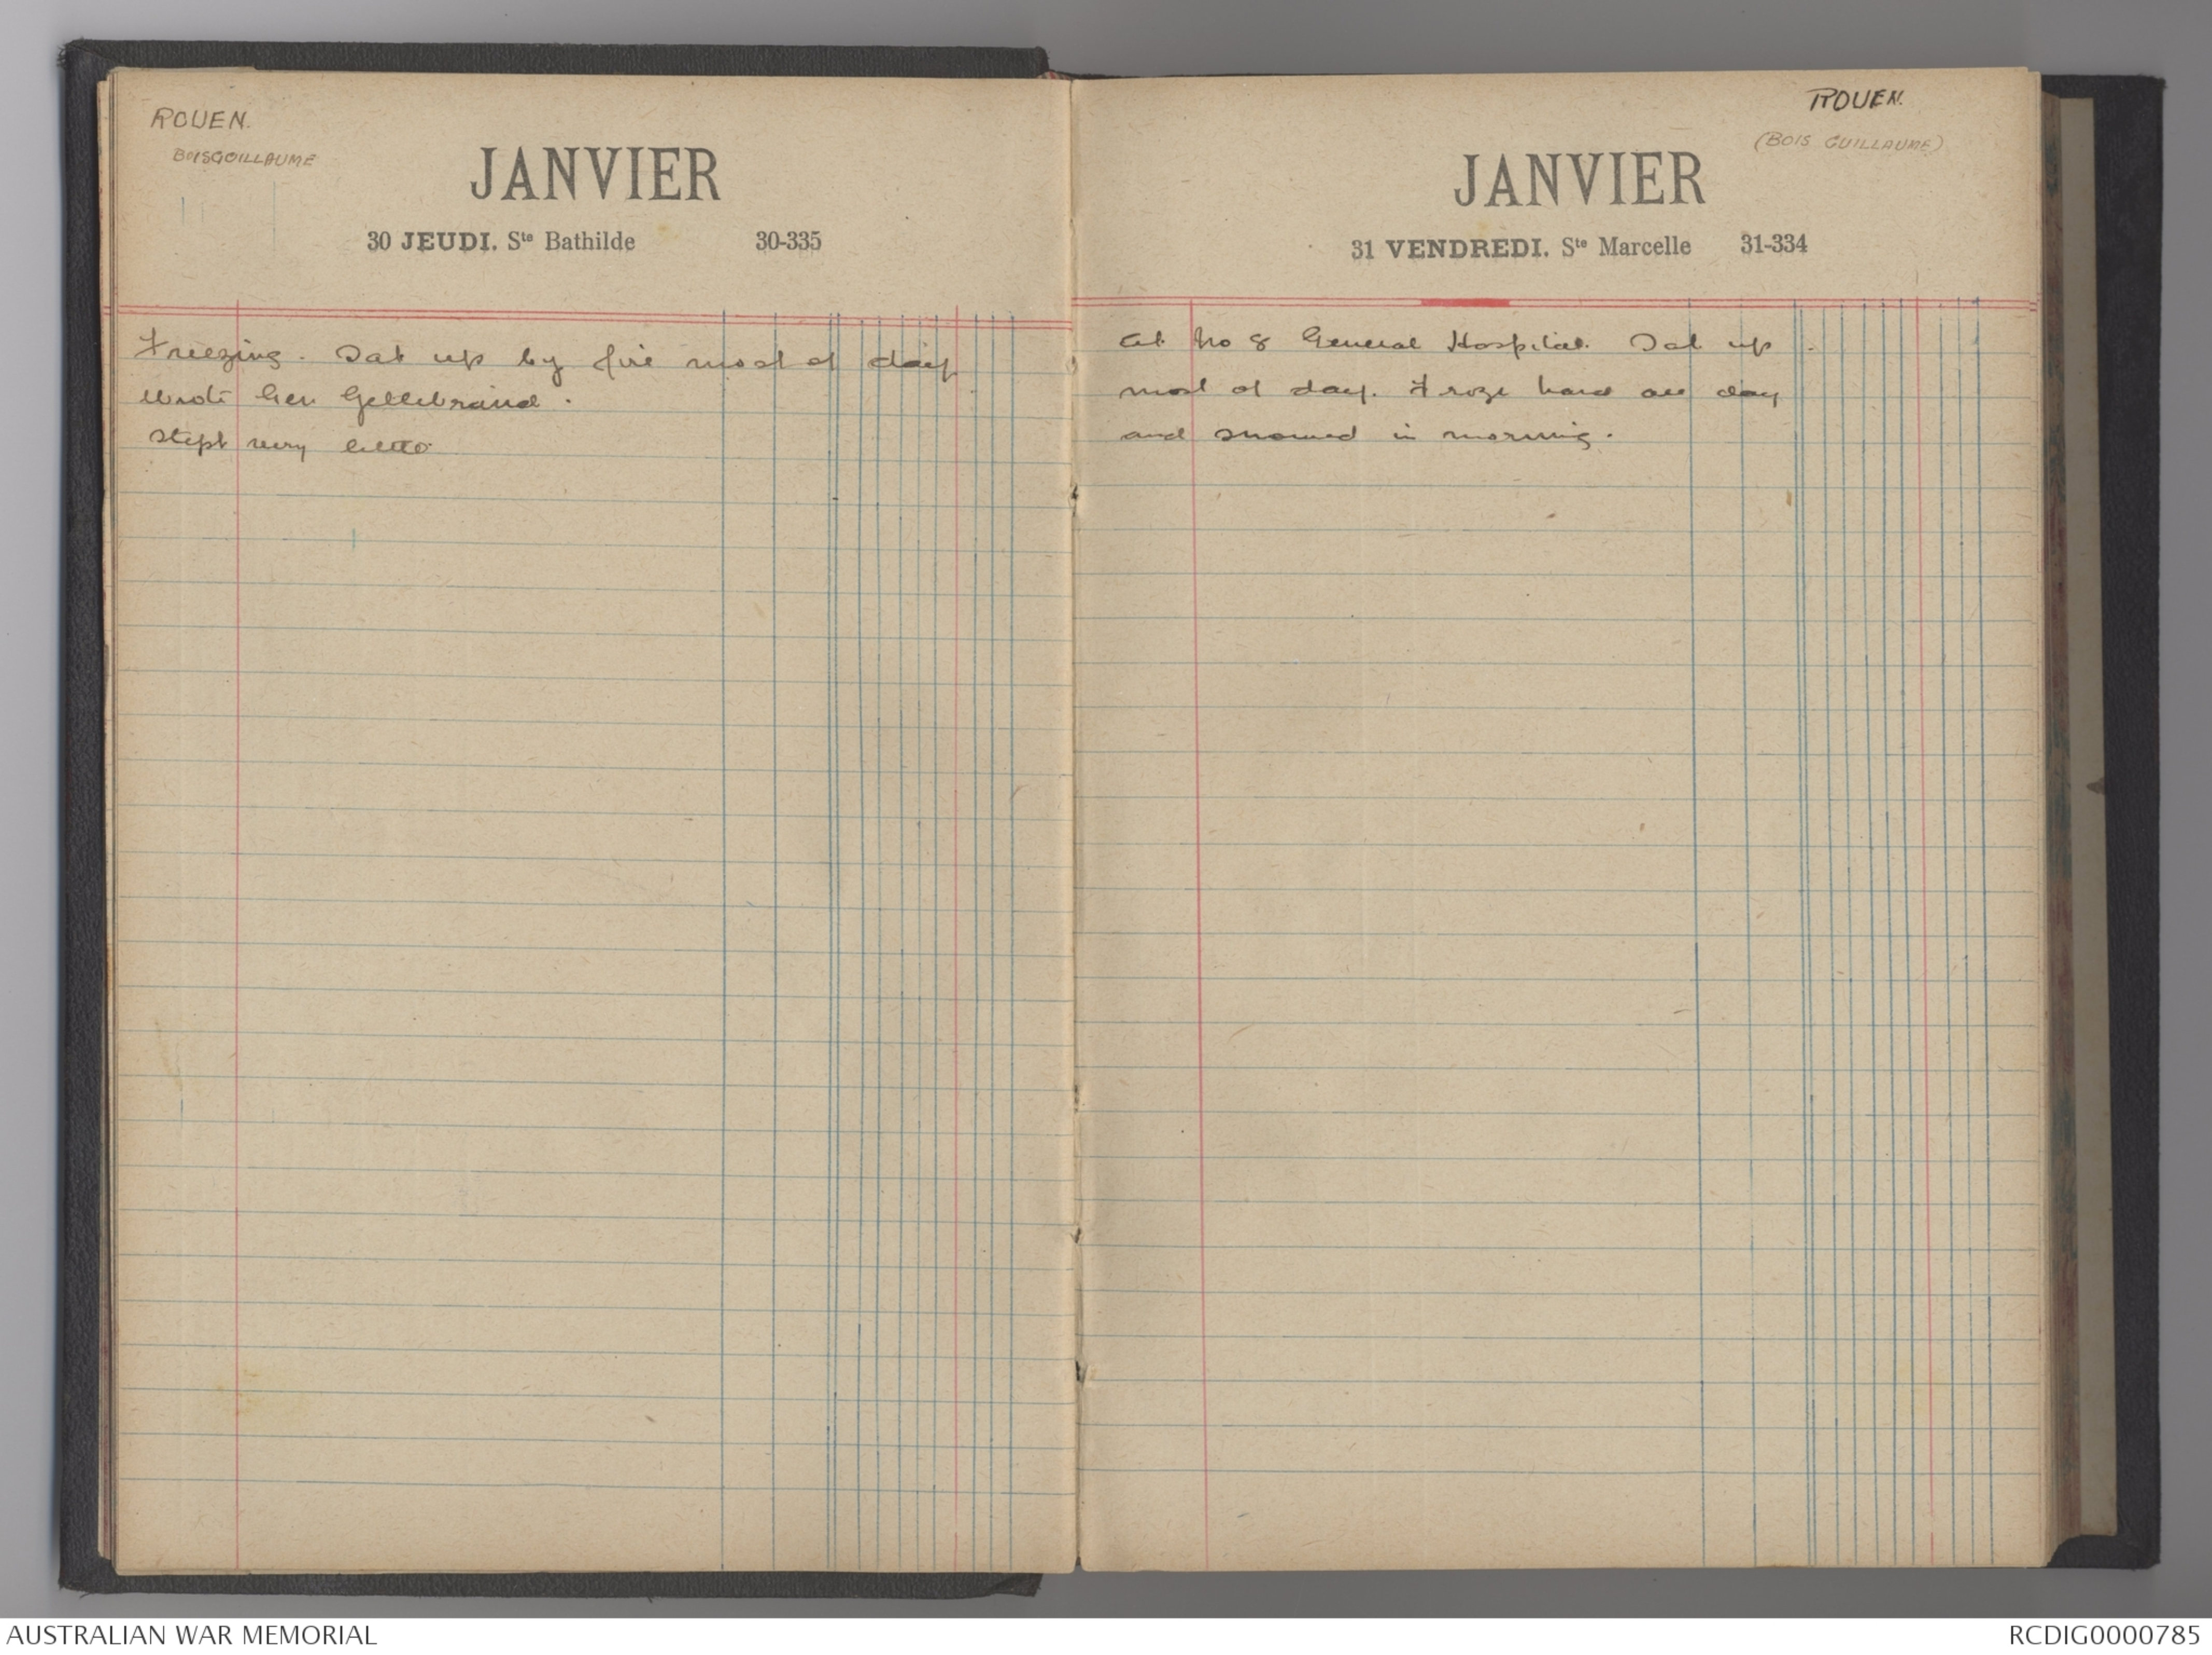 ROUEN.
BOISGUILLAUME
JANVIER
30 JEUDI. Ste Bathilde 30-335
Freezing. Sat up by fire most of day
Wrote Gen Gellibrand.
Slept very little.
ROUEN.
(BOIS GUILLAUME)
JANVIER
31 VENDREDI. Ste Marcelle 31-334
At No 8 General Hospital. Sat up
most of day. Froze hard all day
and snowed in morning.
AUSTRALIAN WAR MEMORIAL
RCDIG0000785